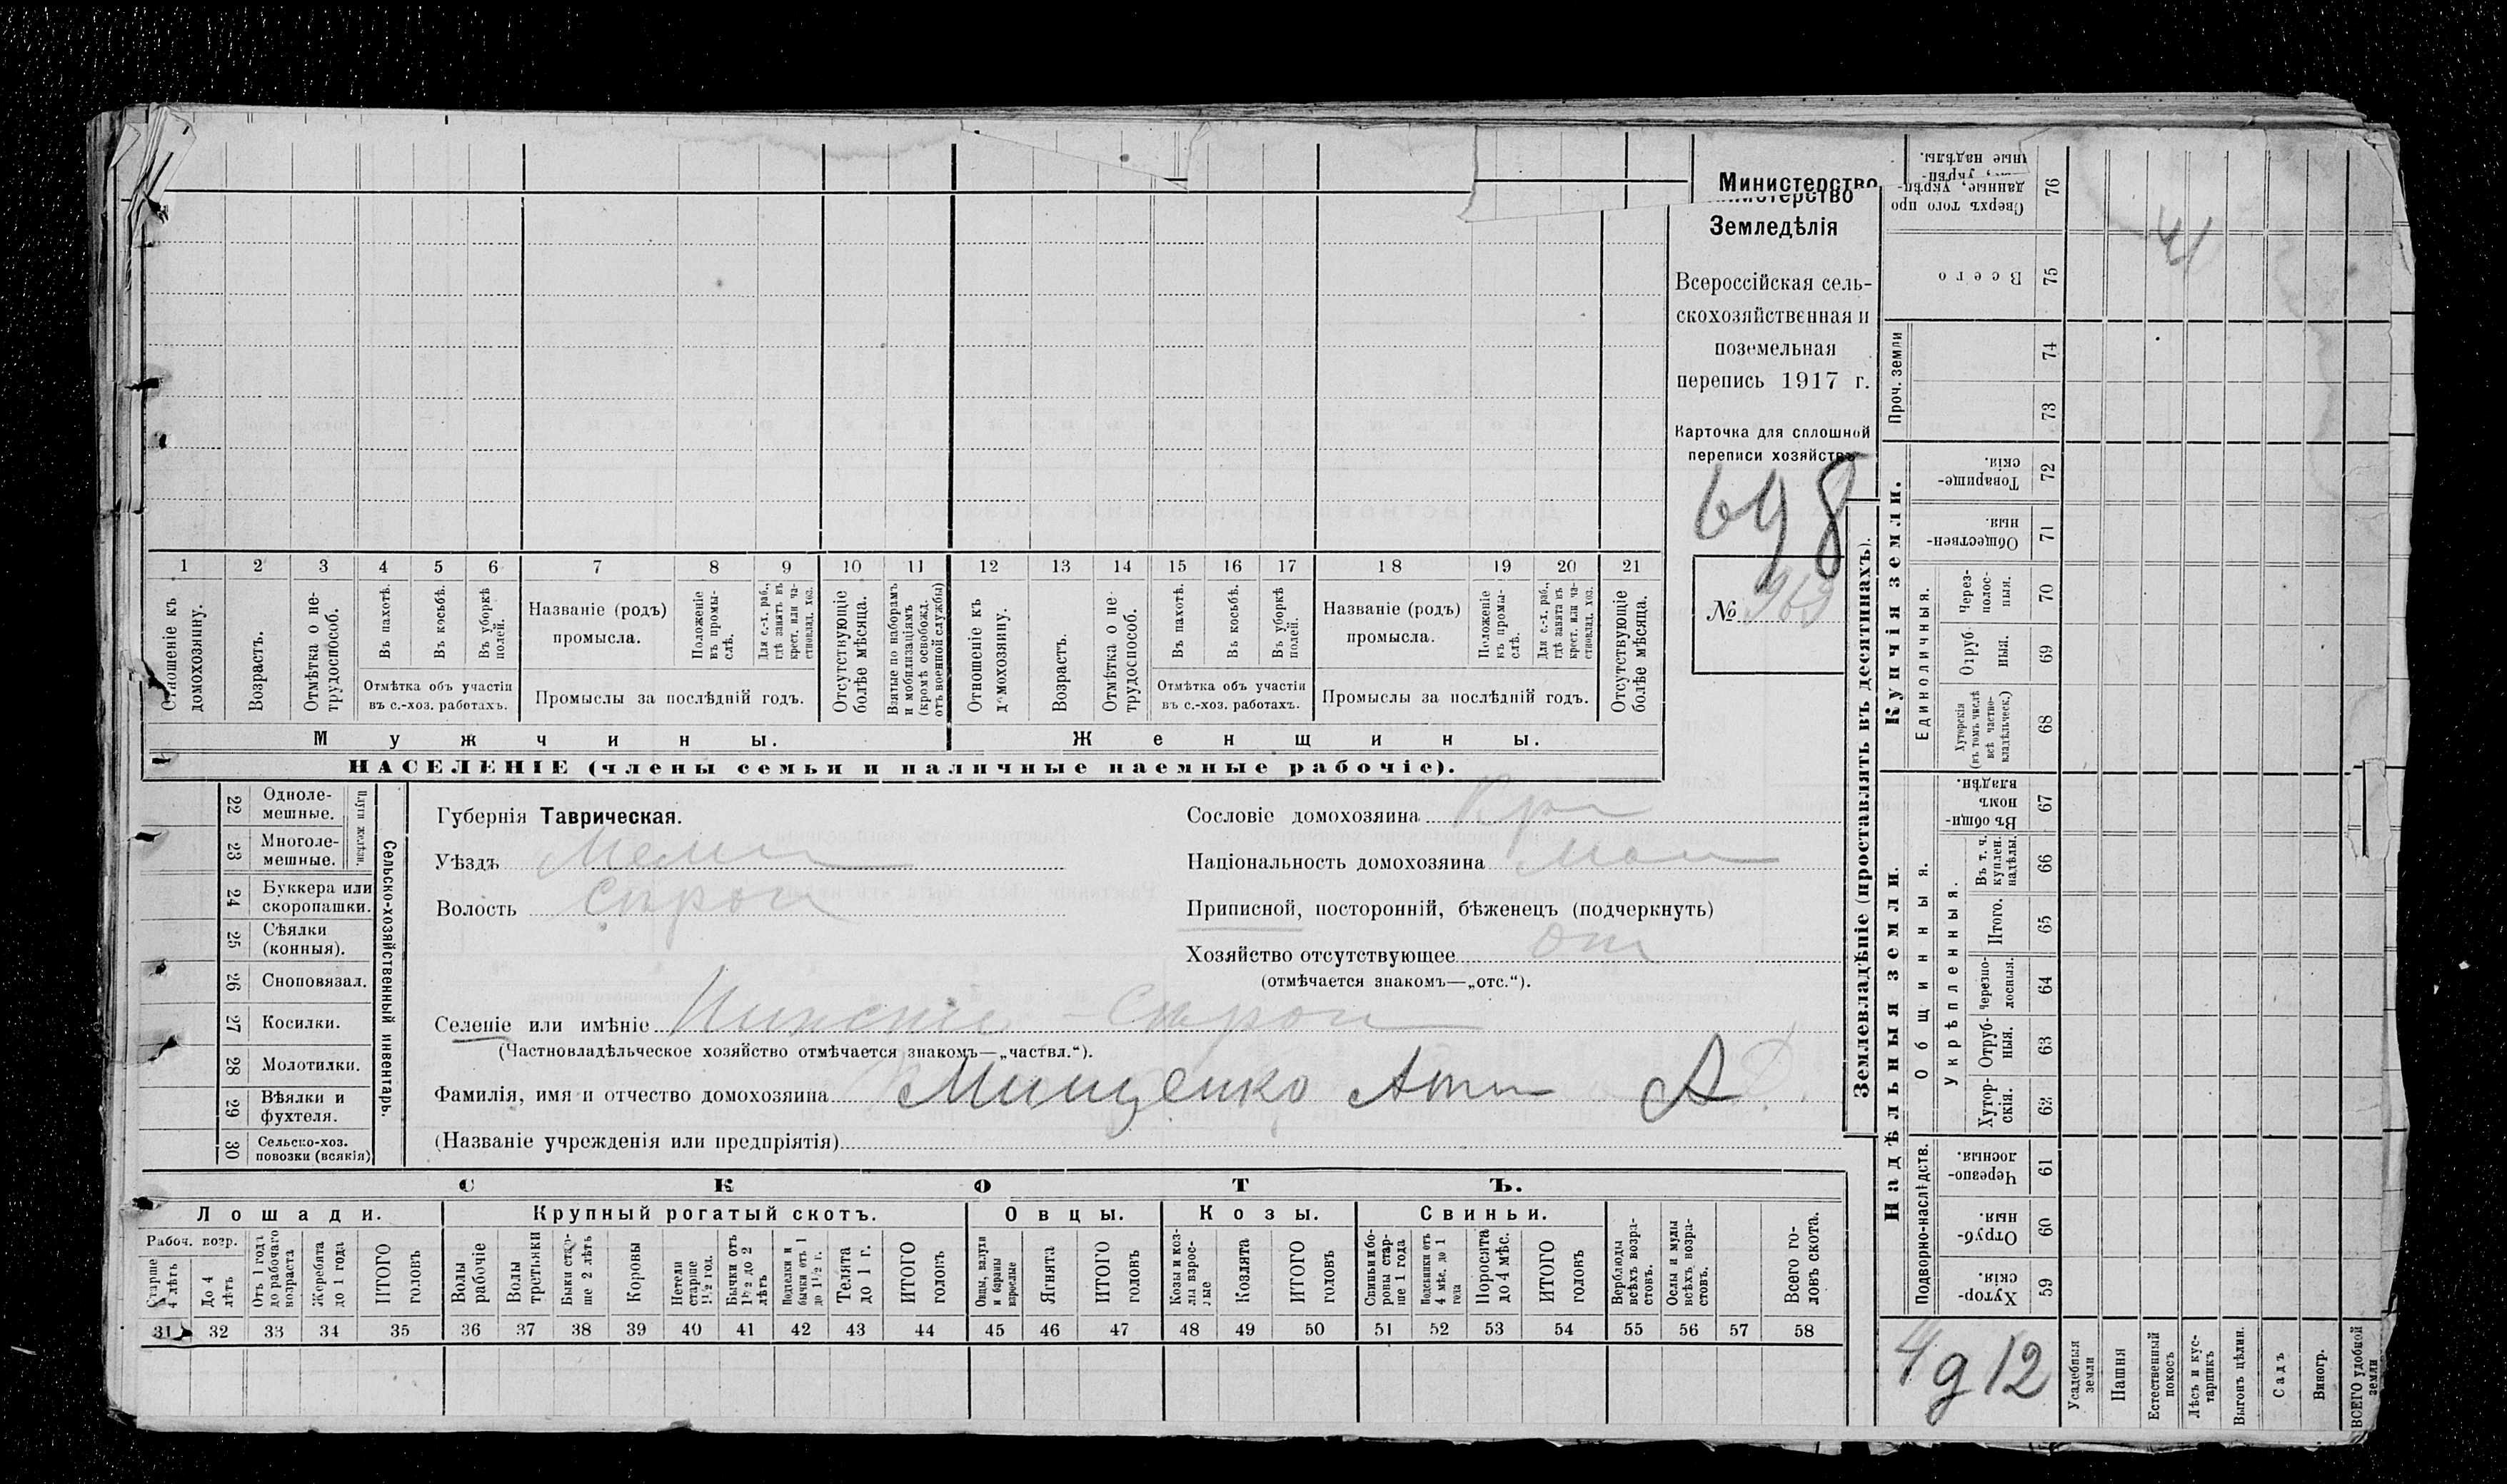 Министерство
Земледѣлія
Всероссійская сель-
скохозяйственная и
поземельная
перепись 1917 г.
Карточка для сплошной
переписи хозяйствъ
698
№ 969
1 2 3 4 5 6 7 8 9 10 11 12 13 14 15 16 17 18 19 20 21
Отношеніе къ домохозяину.
Возрастъ.
Отмѣтка о не-трудоспособ.
Въ пахотѣ.
Въ косьбѣ.
Въ уборкѣ полей.
Отмѣтка объ участіи
въ с.-хоз. работахъ.
Названіе (родъ)
промысла.
Положеніе въ промы-слѣ.
Для с.-х. раб., гдѣ занятъ въ крест. или ча-стновлад. хоз.
Промыслы за послѣдній годъ.
Отсутствующіе болѣе мѣсяца.
Взятые по наборамъ и мобилизаціямъ (кромѣ освобожд. отъ военной службы)
Отношеніе къ домохозяину.
Возрастъ.
Отмѣтка о не-трудоспособ.
Въ пахотѣ.
Въ косьбѣ.
Въ уборкѣ полей.
Отмѣтка объ участіи
въ с.-хоз. работахъ.
Названіе (родъ)
промысла.
Положеніе въ промы-слѣ.
Для с.-х. раб., гдѣ занята въ крест. или ча-стновлад. хоз.
Промыслы за послѣдній годъ.
Отсутствующіе болѣе мѣсяца.
Мужчины. Женщины.
НАСЕЛЕНІЕ (члены семьи и наличные наемные рабочіе).
22 Одноле-мешные.
23 Многоле-мешные.
Плуги желѣзн.
24 Буккера или скоропашки.
25 Сѣялки (конныя).
26 Сноповязал.
27 Косилки.
28 Молотилки.
29 Вѣялки и фухтеля.
30 Сельско-хоз. повозки (всякія)
Сельско-хозяйственный инвентарь.
Губернія Таврическая.
Уѣздъ Мели
Волость
Сословіе домохозяина Кр
Національность домохозяина Мал
Приписной, посторонній, бѣженецъ (подчеркнуть)
Хозяйство отсутствующее
(отмѣчается знакомъ—„отс.“).
Селеніе или имѣніе
(Частновладѣльческое хозяйство отмѣчается знакомъ—„частвл.“).
Фамилія, имя и отчество домохозяина Мищенко А
(Названіе учрежденія или предпріятія)
СКОТЪ.
Лошади. Крупный рогатый скотъ. Овцы. Козы. Свиньи.
Рабоч. возр.
Старше 4 лѣтъ
До 4 лѣтъ
Отъ 1 года до рабочаго возраста
Жеребята до 1 года
ИТОГО головъ
Волы рабочіе
Волы третьяки
Быки стар-ше 2 лѣтъ
Коровы
Нетели старше 1½ год.
Бычки отъ 1½ до 2 лѣтъ
Подтелки и бычки отъ 1 до 1½ г.
Телята до 1 г.
ИТОГО головъ
Овцы, валухи и бараны взрослые
Ягнята
ИТОГО головъ
Козы и коз-лы взрос-лые
Козлята
ИТОГО головъ
Свиньи и бо-ровы стар-ше 1 года
Подсвинки отъ 4 мѣс. до 1 года
Поросята до 4 мѣс.
ИТОГО головъ
Верблюды всѣхъ возра-стовъ.
Ослы и мулы всѣхъ возра-стовъ.
Всего го-ловъ скота.
31 32 33 34 35 36 37 38 39 40 41 42 43 44 45 46 47 48 49 50 51 52 53 54 55 56 57 58
Землевладѣніе (проставлять въ десятинахъ).
Надѣльныя земли. Купчія земли. Проч. земли
Подворно-наслѣдств.
Общинныя.
Укрѣпленныя.
Единоличныя.
76 Сверхъ того про данные, укрѣп-
ные надѣлы.
75 Всего
74
73
72 Товарище-скія.
71 Обществен-ныя.
70 Через-полос-ныя.
69 Отруб-ныя.
68 Хуторскія (въ томъ числѣ всѣ частно-владѣльческ.)
67 Въ общи-номъ владѣн.
66 Въ т. ч. куплен. надѣлы.
65 Итого.
64 Черезпо-лосныя.
63 Отруб-ныя.
62 Хутор-скія.
61 Черезпо-лосныя.
60 Отруб-ныя.
59 Хутор-скія.
Усадебныя земли
Пашня
Естественный покосъ
Лѣсъ и кус-тарникъ
Выгонъ цѣлин.
Садъ
Виногр.
ВСЕГО удобной земли
4 д 12